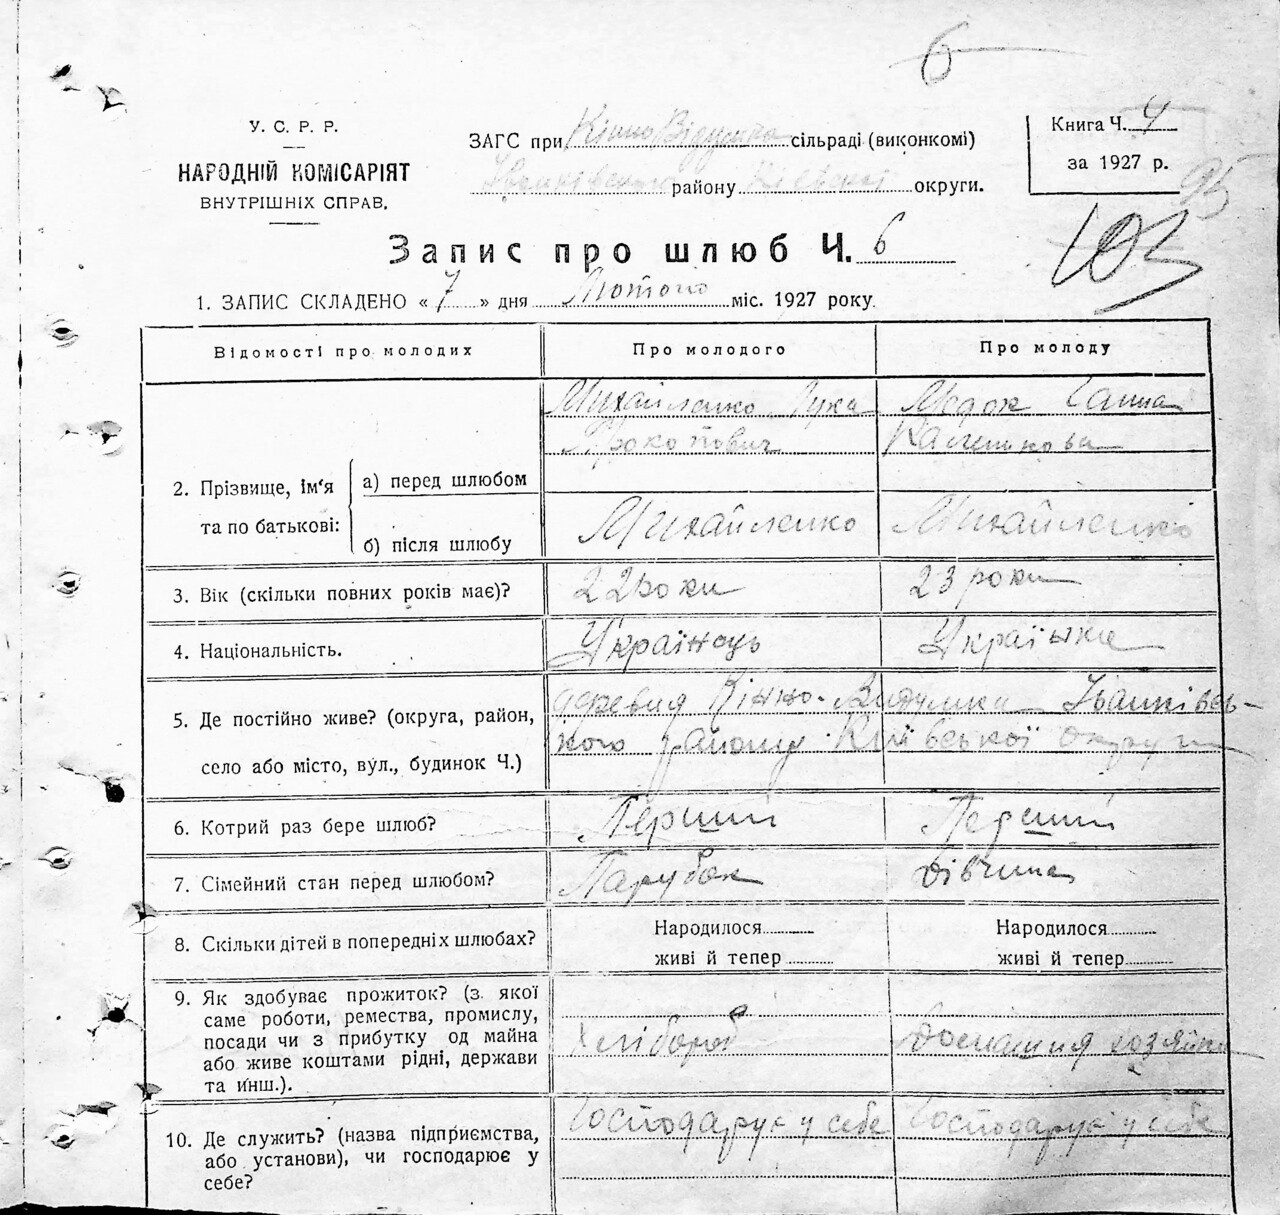 6
У. С. Р. Р.
НАРОДНІЙ КОМІСАРІЯТ
ВНУТРІШНІХ СПРАВ.
ЗАГС при сільраді (виконкомі)
району округи.
Книга Ч. 4
за 1927 р.
95
103
Запис про шлюб Ч. 6
1. ЗАПИС СКЛАДЕНО « 7 » дня Лютого міс. 1927 року.
Відомості про молодих
Про молодого
Про молоду
2. Прізвище, ім'я
та по батькові:
а) перед шлюбом
Михайленко Лука
Прокопович
Ганна
б) після шлюбу
Михайленко
Михайленко
3. Вік (скільки повних років має)?
22 роки
23 роки
4. Національність.
Українець
Українка
5. Де постійно живе? (округа, район,
село або місто, вул., будинок Ч.)
деревня Кінно-Видумка Іванківсь-
кого району Київської округи
6. Котрий раз бере шлюб?
Перший
Перший
7. Сімейний стан перед шлюбом?
Парубок
Дівчина
8. Скільки дітей в попередніх шлюбах?
Народилося
живі й тепер
Народилося
живі й тепер
9. Як здобуває прожиток? (з якої
саме роботи, ремества, промислу,
посади чи з прибутку од майна
або живе коштами рідні, держави
та инш.).
Хлібороб
Домашня хозяйка
10. Де служить? (назва підприємства,
або установи), чи господарює у
себе?
Господарує у себе
Господарує у себе